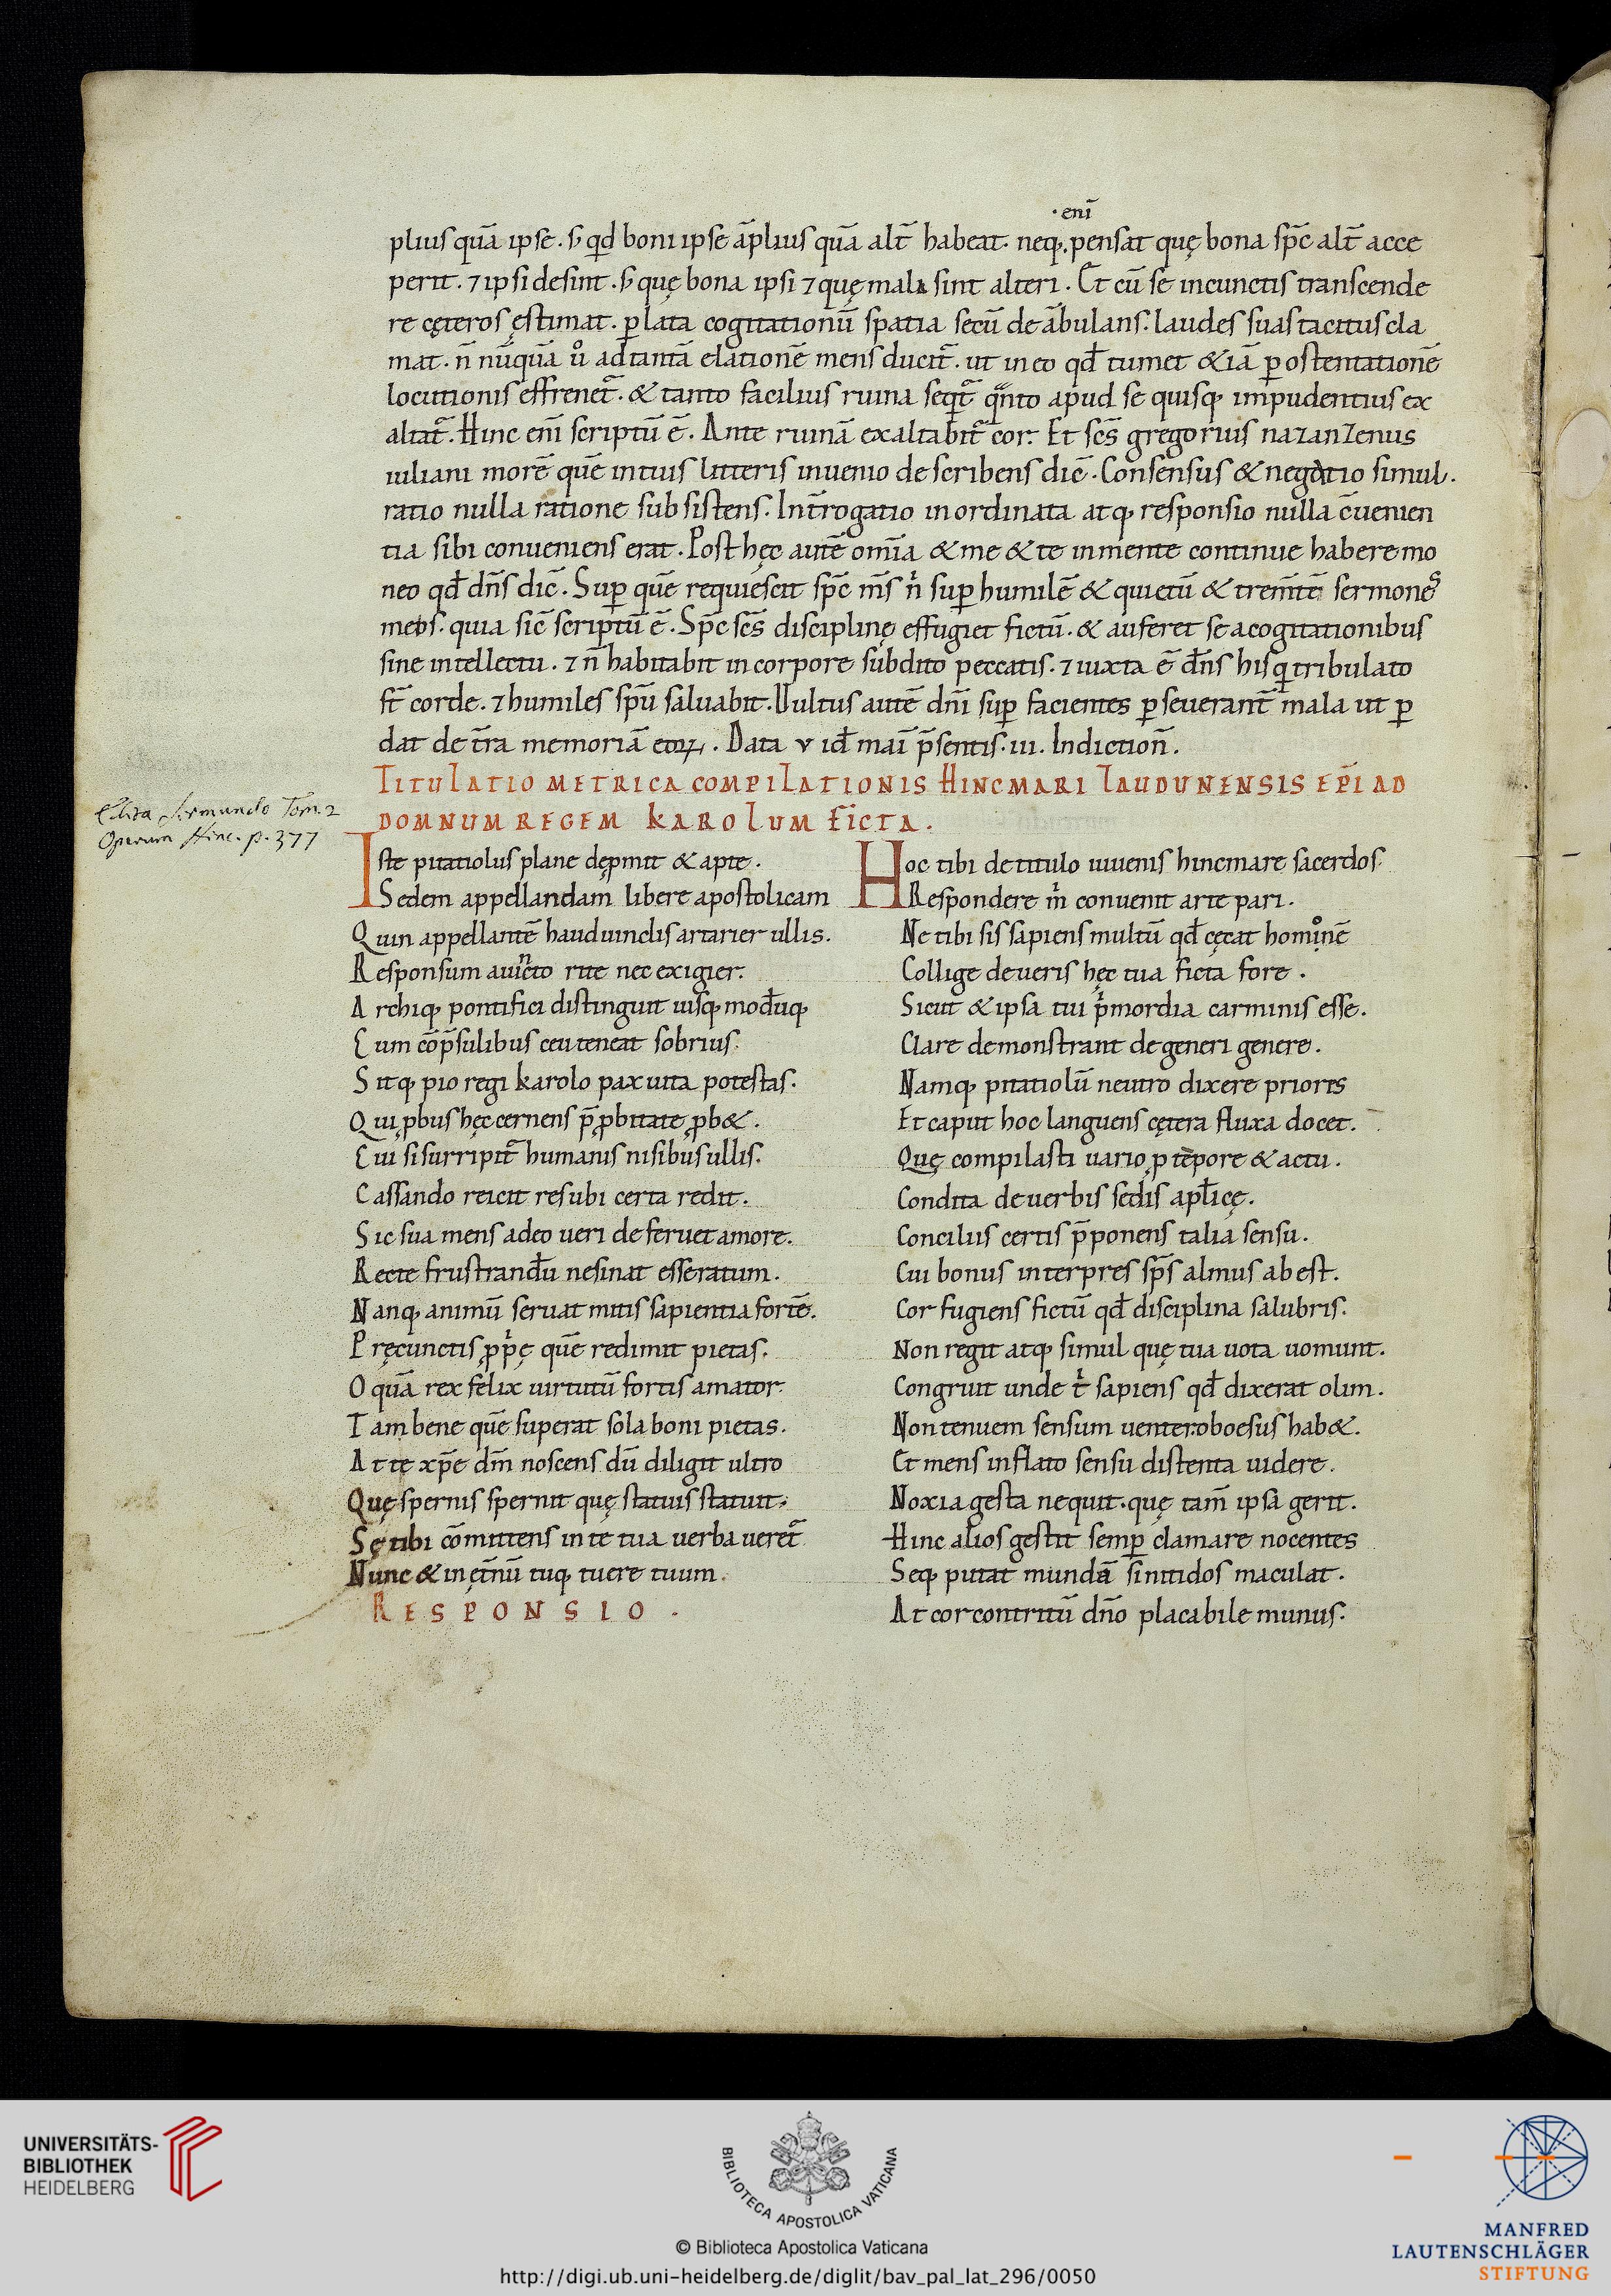 · enī
plius quā ipse. s; qđ boni ipse āplius quā alt̄ habeat. neq; pensat quę bona sp̄c alt̄ acce
perit. ⁊ ipsi desint. s; quę bona ipsi ⁊ quę mala sint alteri. Et cū se incunctis transcende
re cęteros ęstimat. ꝑ lata cogitationū spatia secū deābulans. laudes suas tacitus cla
mat. n̄ nūquā uº ad tantā elationē mens ducit̄. ut in eo qđ tumet & iā ꝑ ostentationē
locutionis effrenet̄. & tanto facilius ruina seqit̄ qnto apud se quisq; impudentius ex
altat̄. Hinc enī scriptū ē. Ante ruinā exaltabit̄ cor. Et scs̄ gregorius nazanzenus
iuliani morē quē in tuis litteris inuenio describens dic̄. Consensus & negatio simul.
ratio nulla ratione subsistens. Int̄rogatio inordinata atq; responsio nulla c̄uenien
tia sibi conueniens erat. Post hęc autē om̄ia & me & te in mente continue habere mo
neo qđ dn̄s dic̄. Suꝑ quē requiescit sp̄c m̄s nⁱ suꝑ humilē & quietū & trem̄tē sermonēs
meos. quia sic̄ scriptū ē. Sp̄c scs̄ disciplinę effugiet fictū. & auferet se a cogitationibus
sine intellectu. ⁊ n̄ habitabit in corpore subdito peccatis. ⁊ iuxta ē dn̄s his q tribulato
st̄ corde. ⁊ humiles sp̄u saluabit. Uultus autē dn̄i suꝑ facientes ꝑseuerant̄ mala ut ꝑ
dat de t̄ra memoriā eoꝝ. Data v id̄ mai p̄sentis. iii. Indiction̄.
TITULATIO METRICA COMPILATIONIS HINCMARI LAUDUNENSIS EP̄I AD
DOMNUM REGEM KAROLUM FICTA.
Edita Sirmundo Tom. 2
Operum Hinc. p. 377
Iste pitatiolus plane dępmit & apte.
Sedem appellandam libere apostolicam
Quin appellantē haud uinclis artarier ullis.
Responsum auincto rite nec exigier.
Archiq; pontifici distinguit iusq; modūq;
Cum cōp̄sulibus ceu teneat sobrius.
Sitq; pio regi karolo pax uita potestas.
Qui ꝓbus hęc cernens p̄ ꝓbitate ꝓb&.
Cui si surripit̄ humanis nisibus ullis.
Cassando reicit res ubi certa redit.
Sic sua mens adeo ueri deferuet amore.
Recte frustrandū ne sinat esse ratum.
Nanq; animū seruat mitis sapientia fortē.
Pręcunctis ꝓpⁱę quē redimit pietas.
O quā rex felix uirtutū fortis amator.
Tam bene quē superat sola boni pietas.
At tę xp̄e dm̄ noscens dū diligit ultro
Quę spernis spernit quę statuis statuit.
Sę tibi cōmittens in te tua uerba ueret̄
Nunc & in ęt̄nū tuq; tuere tuum.
RESPONSIO.
Hoc tibi de titulo iuuenis hincmare sacerdos
Respondere mⁱ conuenit arte pari.
Ne tibi sis sapiens multū qđ cęcat hominē
Collige de ueris hęc tua ficta fore.
Sicut & ipsa tui pⁱmordia carminis esse.
Clare demonstrant degeneri genere.
Namq; pitatiolū neutro dixere priores
Et caput hoc languens cętera fluxa docet.
Quę compilasti uario ꝓ tēpore & actu.
Condita de uerbis sedis apl̄icę.
Conciliis certis p̄ponens talia sensu.
Cui bonus interpres sp̄s almus abest.
Cor fugiens fictū qđ disciplina salubris.
Non regit atq; simul quę tua uota uomunt.
Congruit unde tⁱ sapiens qđ dixerat olim.
Non tenuem sensum uenter oboesus hab&.
Et mens inflato sensu distenta uidere.
Noxia gesta nequit. quę tam̄ ipsa gerit.
Hinc alios gestit semꝑ clamare nocentes
Seq; putat mundā si nitidos maculat.
At cor contritū dn̄o placabile munus.
UNIVERSITÄTS-
BIBLIOTHEK
HEIDELBERG
BIBLIOTECA APOSTOLICA VATICANA
© Biblioteca Apostolica Vaticana
http://digi.ub.uni-heidelberg.de/diglit/bav_pal_lat_296/0050
MANFRED
LAUTENSCHLÄGER
STIFTUNG